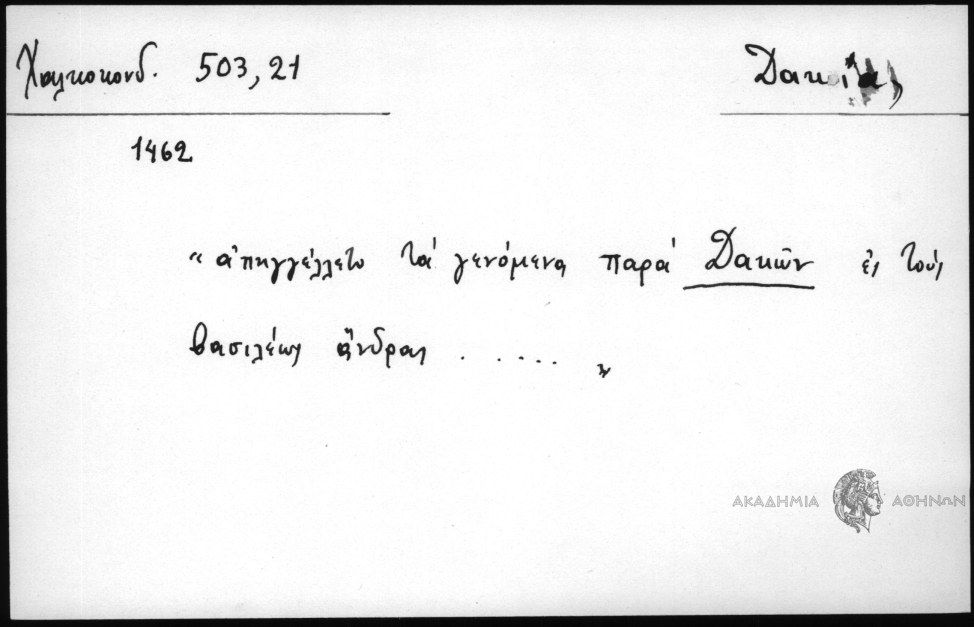 Χαλκοκονδ. 503,21
Δακία,
1462
"ἀπηγγέλλετο τά γενόμενα παρά Δακῶν ἐς τούς
βασιλέως ἄνδρας . . . . . . "
ΑΚΑΔΗΜΙΑ ΑΘΗΝΩΝ